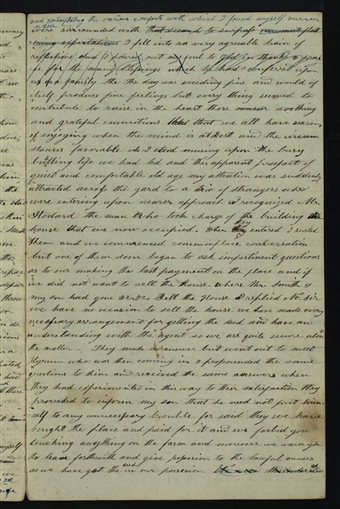 and contemplating the various comforts with which I found myself
were surrounded with that seemed to surpass
I fell into a very agreable train of
reflections and I poured out my soul to God in thanks & praise
for the many blessings which he had conferred upon
us as a family the the day was exceeding fine and would of
itself produce fine feelings but every thing seemed to
contribute to raise in the heart those soothing
and grateful emotions that we all have season
of enjoying when the mind is at rest and the circum
stances favorable As I stood musing upon the busy
bustling life we had led and the apparent prospect of
quiet and comfortable old age my attention was suddenly
attracted across the yard to a trio of strangers who
were entering upon nearer approach I recognized Mr
Stodard the man who took charge of the building the
house that we now occupied. When they entered I seated
them and we commenced commonplace conversation
but one of them soon began to ask impertinent questions
as to our making the last payment on the place and if
we did not want to sell the House where Mrs Smith &
my son had gone &c &c Sell the House I replied No Sir
we have no occasion to sell the house we have made every
necessary arrangement for getting the deed and have an
understanding with the agent so we are quite secure about
the matter. They made no answer but went out to meet
Hyrum who was then coming in & propounded the same
questions to him and received the same answers when
they had experimented in this way to their satisfaction they
proceeded to inform my son that he need not put him
self to any unnecessary trouble for said they we have
bought the place and paid for it and we forbid you
touching anything on the farm and moreover we warn you
to leave forthwith and give possession to the lawful owners
as we have got the deed in our possession